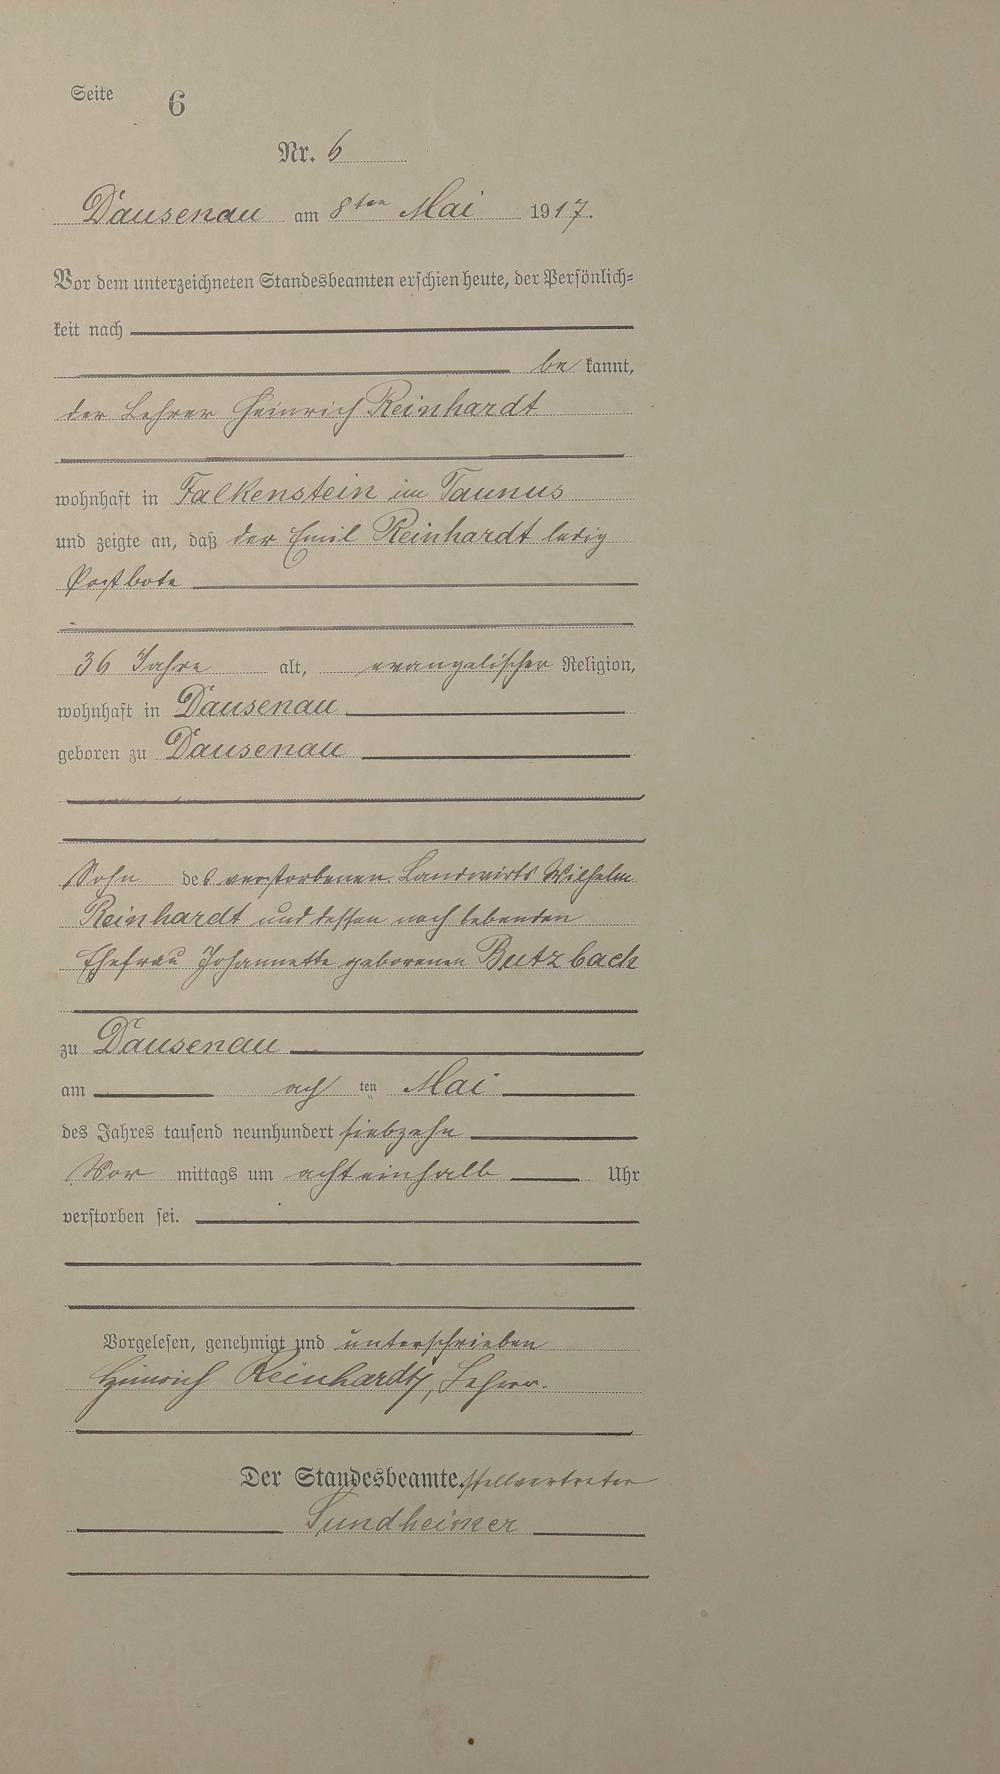 Seite 6
Nr. 6
Dausenau am 8ten Mai 1917.
Vor dem unterzeichneten Standesbeamten erschien heute, der Persönlich-
keit nach
be kannt,
der Lehrer Heinrich Reinhardt
wohnhaft in Falkenstein im Taunus
und zeigte an, daß der Emil Reinhardt ledig
Postbote
36 Jahre alt, evangelischer Religion,
wohnhaft in Dausenau
geboren zu Dausenau
Sohn des verstorbenen Landwirts Wilhelm
Reinhardt und dessen noch lebenden
Ehefrau Johannette geborenen Butzbach
zu Dausenau
am ach ten Mai
des Jahres tausend neunhundert siebzehn
Vor mittags um achteinhalb Uhr
verstorben sei.
Vorgelesen, genehmigt und unterschrieben
Heinrich Reinhardt, Lehrer.
Der Standesbeamte. Stellvertreter
Sundheimer